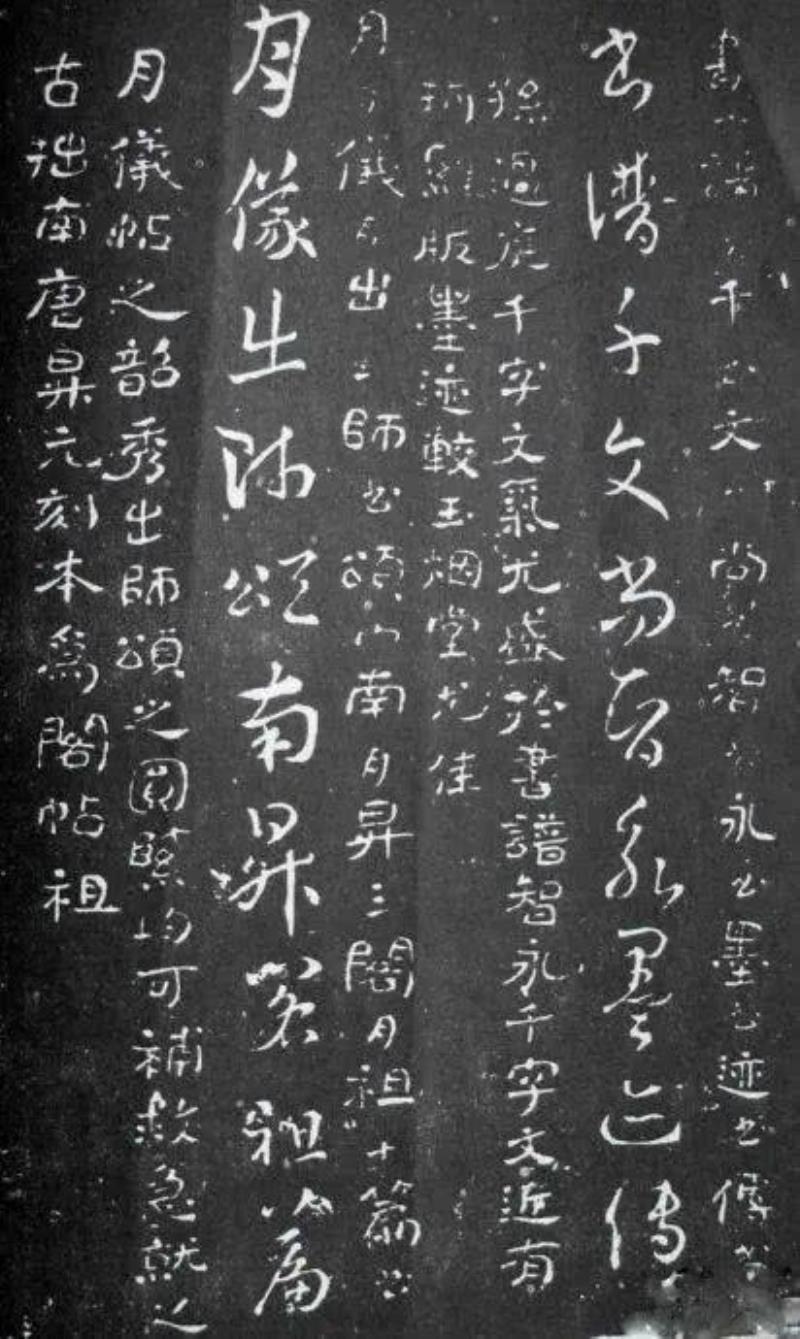 書譜千文尚智永墨迹傳
書譜千文尚智永墨迹傳
孫過庭千字文氣尤盛於書譜智永千字文近有
珂羅版墨迹較玉烟堂尤佳
月儀出師頌南昇閣祖篇
月儀出師頌南昇閣祖篇
月儀帖之韶秀出師頌之圓熟均可補救急就之
古拙南唐昇元刻本爲閣帖祖